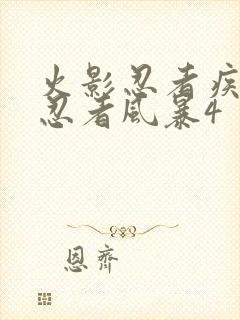 火影忍者疾
忍者风暴4
恩齐